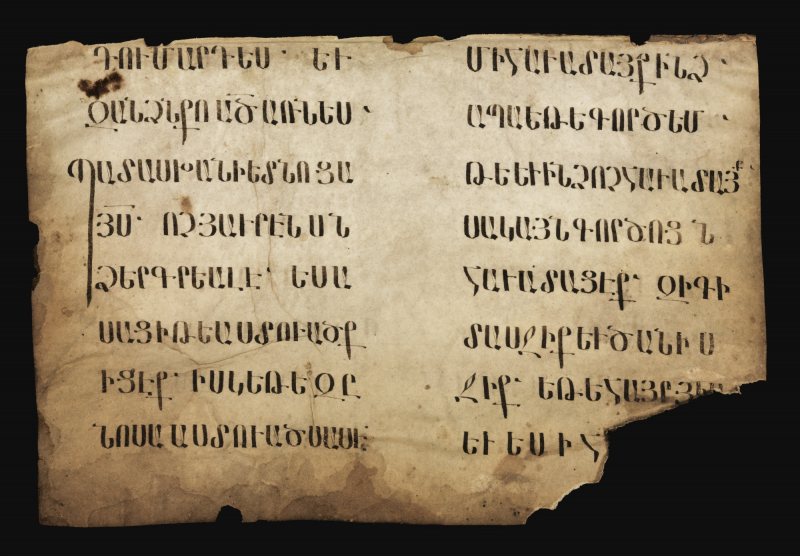 ԴՈՒՄԱՐԴԵՍ· ԵՒ
ԶԱՆՁՆՔՈԱԾԱՌՆԵՍ·
ՊԱՏԱՍԽԱՆԻԵՏՆՈՑԱ
ՅՍ· ՈՉՅԱՒՐԷՆՍՆ
ՁԵՐԳՐԵԱԼԷ· ԵՍԱ
ՍԱՑԻԹԵԱՍՏՈՒԱԾՔ
ԻՑԷՔ· ԻՍԿԵԹԵԶԸ
ՆՈՍԱԱՍՏՈՒԱԾՍԱՍԷ
ՄԻՀԱՒԱՏԱՅՔԻՆՁ·
ԱՊԱԵԹԵԳՈՐԾԵՄ·
ԹԵԵՒԻՆՁՈՉՀԱՒԱՏԱՅՔ
ՍԱԿԱՅՆԳՈՐԾՈՑՆ
ՀԱՒԱՏԱՑԷՔ· ԶԻԳԻ
ՏԱՍՋԻՔԵՒԾԱՆԻՍ
ՋԻՔ· ԵԹԵՀԱՅՐՅԻՍ
ԵՒ ԵՍ Ի Հ